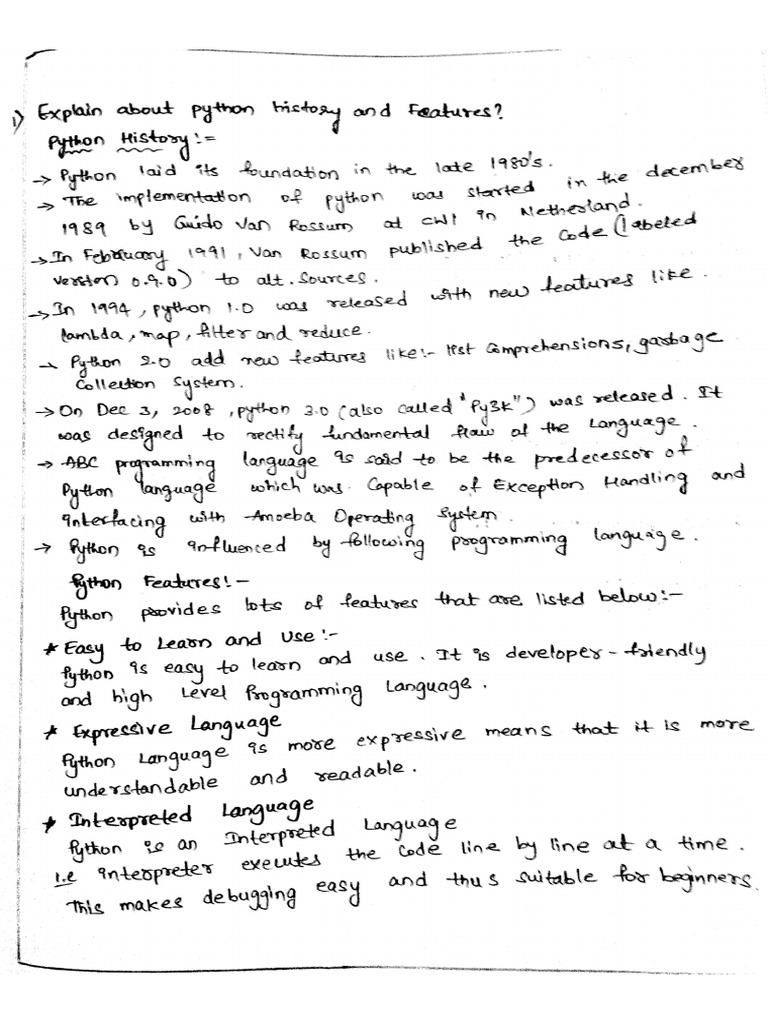 1) Explain about python history and Features?
Python History:=
→ Python laid its foundation in the late 1980's.
→ The implementation of python was started in the december
1989 by Guido Van Rossum at CWI in Netherland.
→ In February 1991, Van Rossum published the code (labeled
version 0.9.0) to alt.sources.
→ In 1994, python 1.0 was released with new features like.
lambda, map, filter and reduce.
→ Python 2.0 add new features like:- list comprehensions, garbage
collection System.
→ On Dec 3, 2008, python 3.0 (also called "Py3k") was released. It
was designed to rectify fundamental flaw of the Language.
→ ABC programming language is said to be the predecessor of
Python language which was Capable of Exception Handling and
interfacing with Amoeba Operating System.
→ Python is influenced by following programming language.
Python Features:-
Python provides lots of features that are listed below:-
* Easy to Learn and Use:-
Python is easy to learn and use. It is developer-friendly
and high Level Programming Language.
* Expressive Language
Python Language is more expressive means that it is more
understandable and readable.
* Interpreted Language
Python is an Interpreted Language
i.e interpreter executes the code line by line at a time.
This makes debugging easy and thus suitable for beginners.